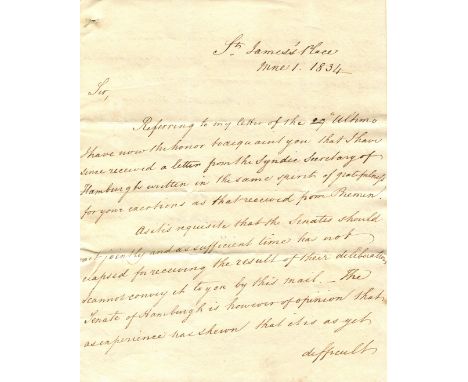 St. James's Place
June 1. 1834
Sir,
Referring to my letter of the 29th Ultimo
I have now the honor to acquaint you that I have
since received a letter from the Syndic Secretary of
Hamburgh written in the same spirit of gratefulness
for your exertions as that received from Bremen.
As it is requisite that the Senates should
act jointly and as sufficient time has not
elapsed for receiving the result of their deliberation
I cannot convey it to you by this mail. _ The
Senate of Hamburgh is however of opinion that
as experience has shewn that it is as yet
difficult